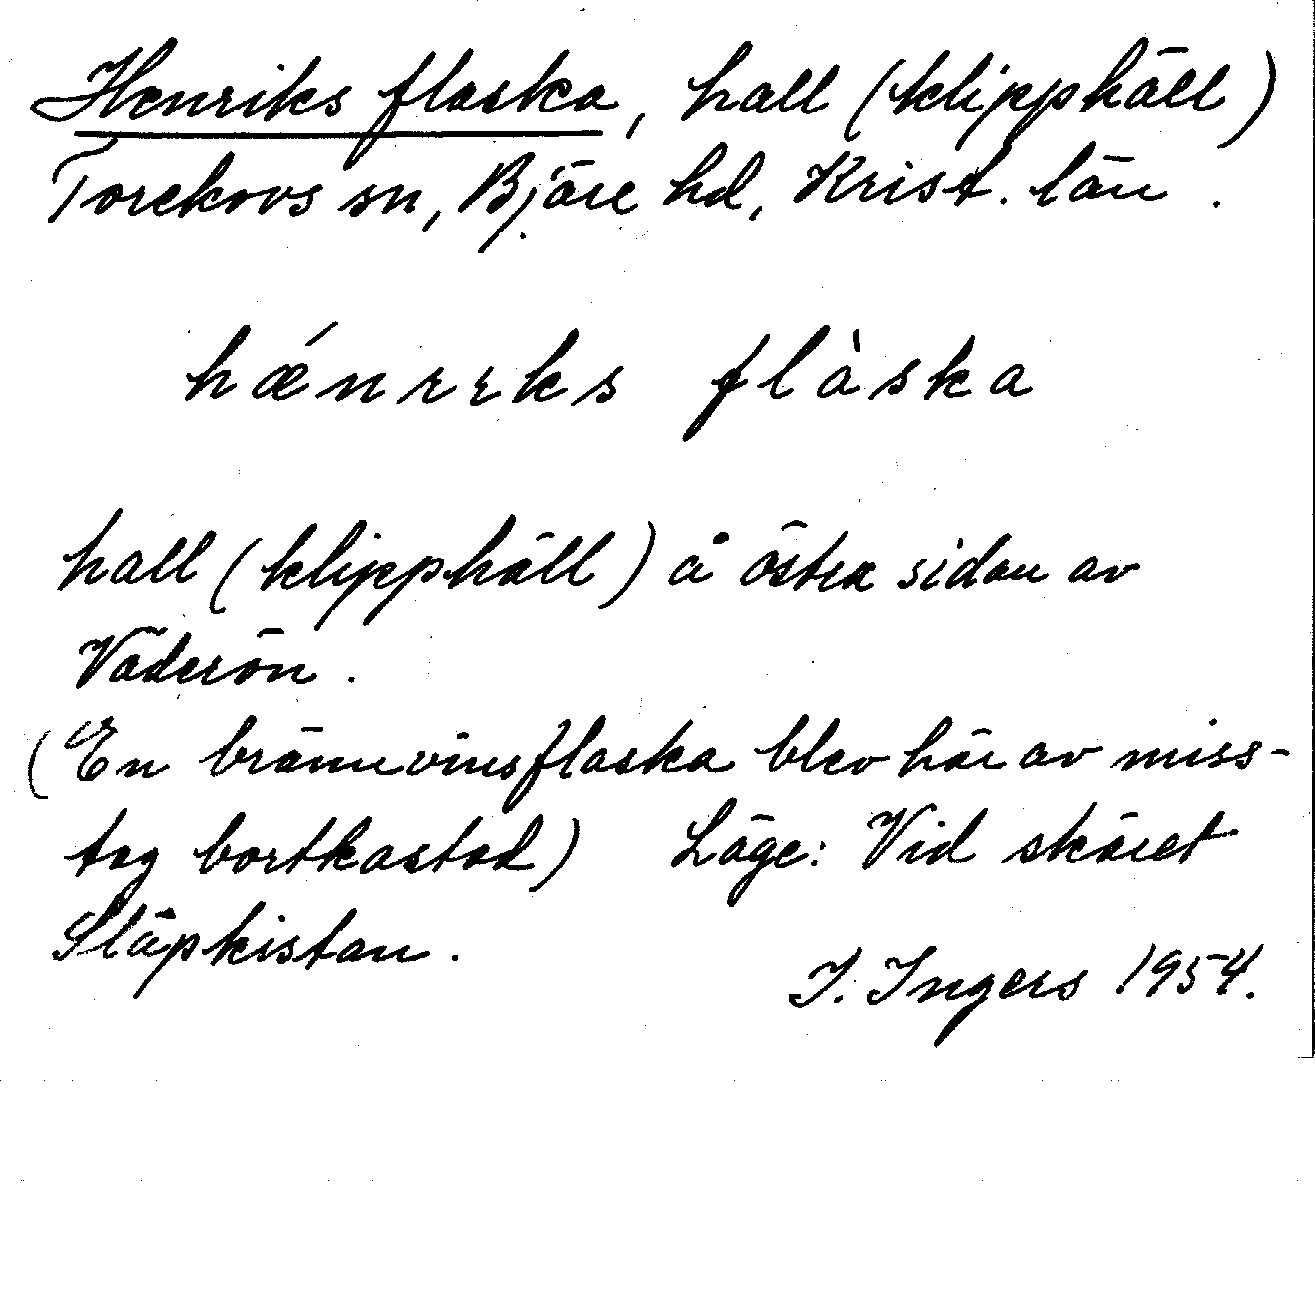 Henriks flaska, hall (klipphäll)
Torekovs sn, Bjäre hd, Krist. län.
hǽnrɪks flàska
hall (klipphäll) å östra sidan av
Väderön.
(En brännvinsflaska blev här av miss-
tag bortkastad) Läge: Vid skäret
Släpkistan.
I. Ingers 1954.